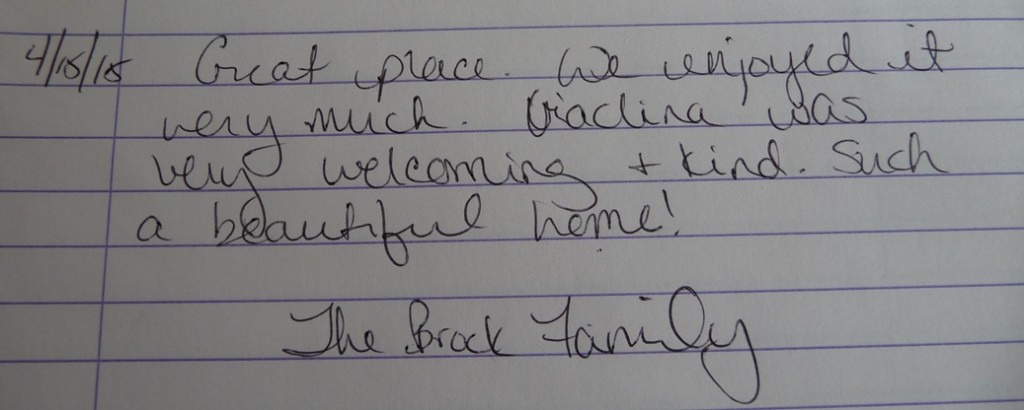 4/15/15 Great place. We enjoyed it
very much. was
very welcoming + kind. Such
a beautiful home!
The Brock Family